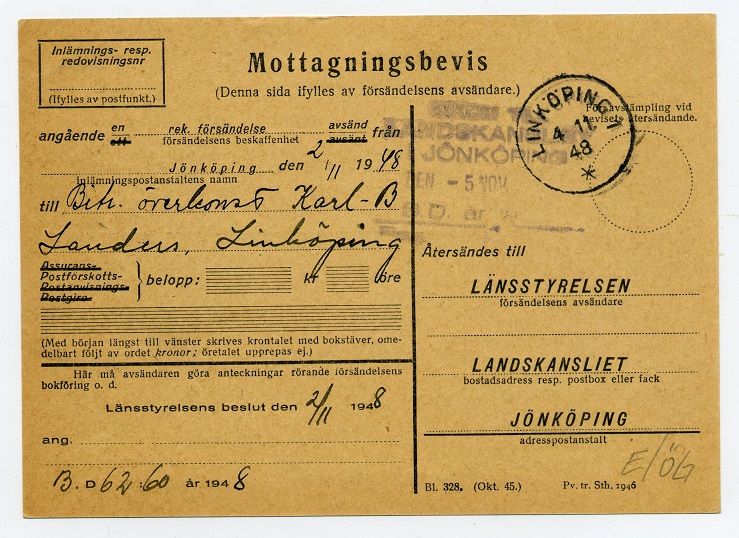 Inlämnings- resp.
redovisningsnr
(Ifylles av postfunkt.)
Mottagningsbevis
(Denna sida ifylles av försändelsens avsändare.)
angående en ett rek. försändelse avsänd avsänt från
försändelsens beskaffenhet
Jönköping den 2/11 1948
inlämningspostanstaltens namn
till Bitr. överkonst Karl-B
Landers, Linköping
Assurans-
Postförskotts-
Postanvisnings-
Postgiro-
belopp: kr öre
(Med början längst till vänster skrives krontalet med bokstäver, ome-
delbart följt av ordet kronor; öretalet upprepas ej.)
Här må avsändaren göra anteckningar rörande försändelsens
bokföring o. d.
Länsstyrelsens beslut den 2/11 1948
ang.
B. D 62:60 år 1948
LINKÖPING 1
4 11
48
För avstämpling vid
bevisets återsändande.
LANDSKANSLI
JÖNKÖPING
DEN - 5 NOV
D. år
Återsändes till
LÄNSSTYRELSEN
försändelsens avsändare
LANDSKANSLIET
bostadsadress resp. postbox eller fack
JÖNKÖPING
adresspostanstalt
E/ÖG
Bl. 328. (Okt. 45.) Pv. tr. Sth. 1946